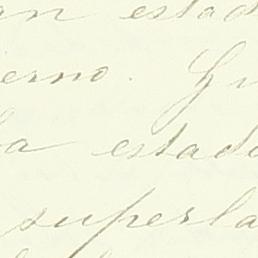 an estad
erno. Gu
la estado
superla